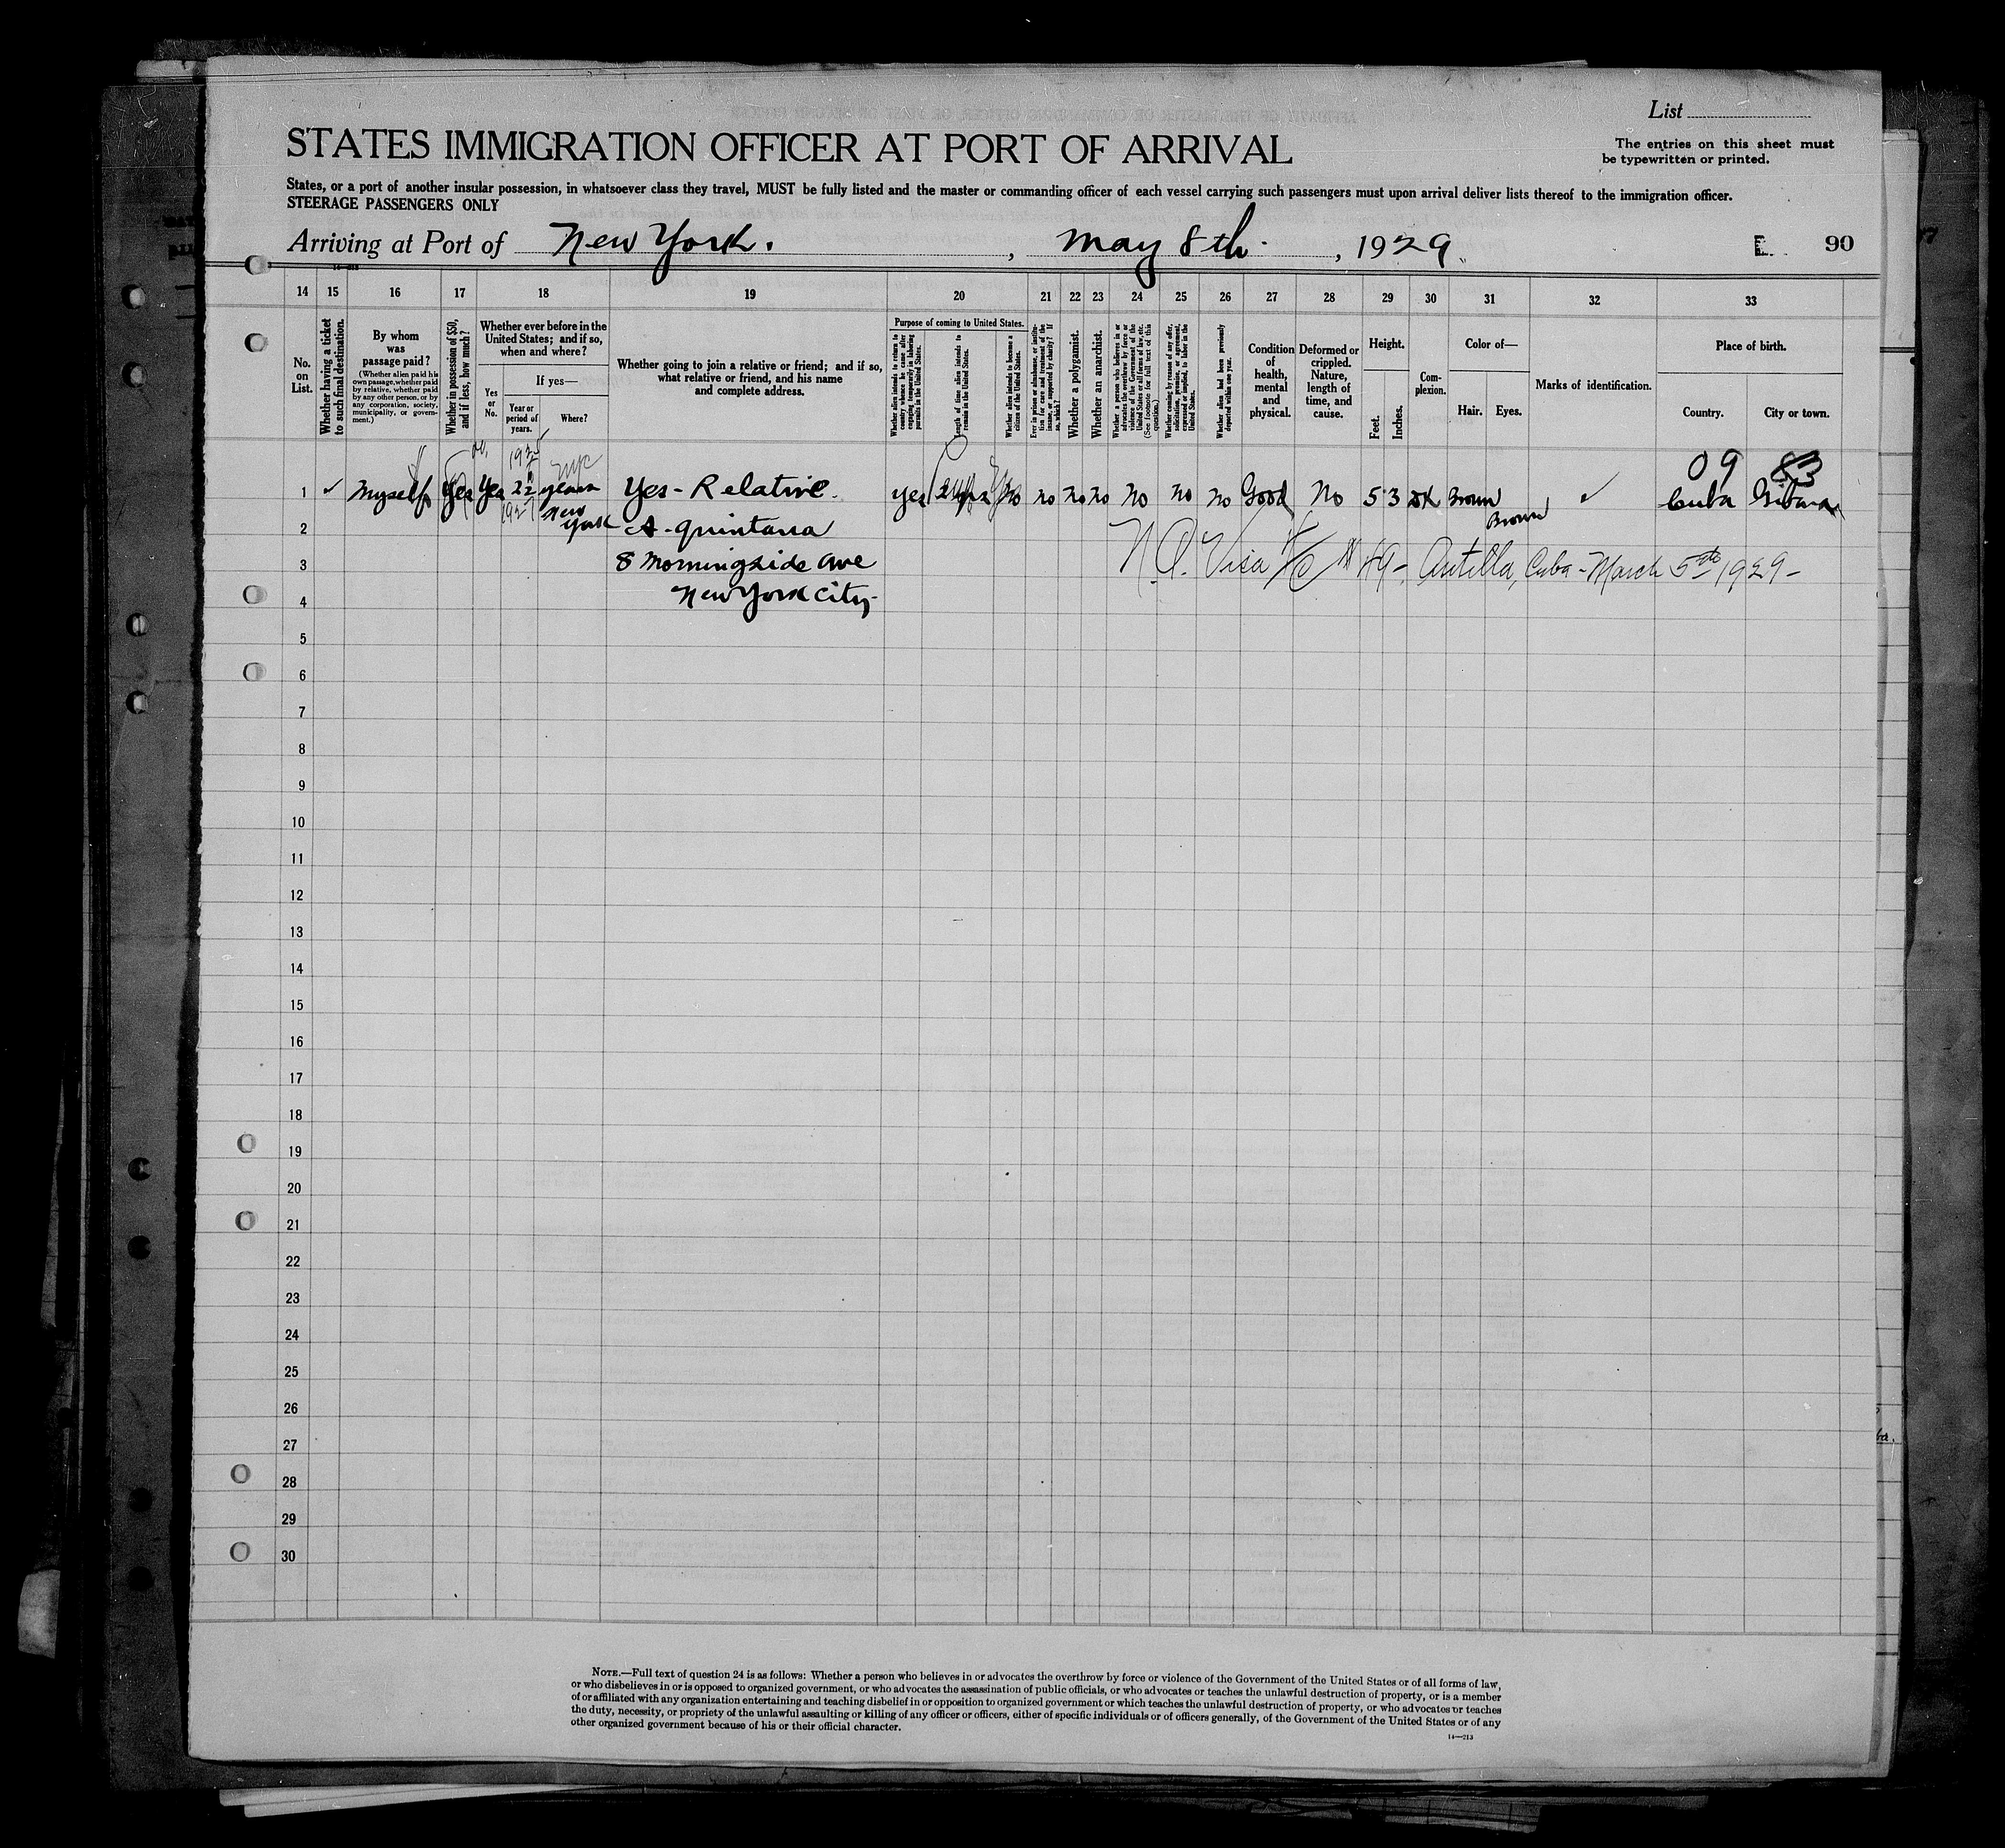 List
STATES IMMIGRATION OFFICER AT PORT OF ARRIVAL
The entries on this sheet must
be typewritten or printed.
States, or a port of another insular possession, in whatsoever class they travel, MUST be fully listed and the master or commanding officer of each vessel carrying such passengers must upon arrival deliver lists thereof to the immigration officer.
STEERAGE PASSENGERS ONLY
Arriving at Port of New York. , May 8th. , 1929
90
14 15 16 17 18 19 20 21 22 23 24 25 26 27 28 29 30 31 32 33
No. on List.
Whether having a ticket to such final destination.
By whom was passage paid?
(Whether alien paid his own passage, whether paid by relative, whether paid by any other person, or by any corporation, society, municipality, or government.)
Whether in possession of $50, and if less, how much?
Whether ever before in the United States; and if so, when and where?
Yes or No.
If yes—
Year or period of years.
Where?
Whether going to join a relative or friend; and if so, what relative or friend, and his name and complete address.
Purpose of coming to United States.
Whether alien intends to return to country whence he came after engaging temporarily in laboring pursuits in the United States.
Length of time alien intends to remain in the United States.
Whether alien intends to become a citizen of the United States.
Ever in prison or almshouse, or institution for care and treatment of the insane, or supported by charity? If so, which?
Whether a polygamist.
Whether an anarchist.
Whether a person who believes in or advocates the overthrow by force or violence of the Government of the United States or all forms of law, etc. (See footnote for full text of this question.)
Whether coming by reason of any offer, solicitation, promise, or agreement, expressed or implied, to labor in the United States.
Whether alien had been previously deported within one year.
Condition of health, mental and physical.
Deformed or crippled. Nature, length of time, and cause.
Height.
Feet. Inches.
Complexion.
Color of—
Hair. Eyes.
Marks of identification.
Place of birth.
Country. City or town.
09 83
1 ✓ Myself Yes Yes 22 years Yes - Relative. Yes No No No No No No No Good No 5 3 Brown Brown ✓ Cuba Gibara
New York
2 A. Quintana
3 8 Morningside Ave
N.Q. Visa #49 - Antilla, Cuba - March 5th 1929 -
4 New York City.
5
6
7
8
9
10
11
12
13
14
15
16
17
18
19
20
21
22
23
24
25
26
27
28
29
30
NOTE.—Full text of question 24 is as follows: Whether a person who believes in or advocates the overthrow by force or violence of the Government of the United States or of all forms of law,
or who disbelieves in or is opposed to organized government, or who advocates the assassination of public officials, or who advocates or teaches the unlawful destruction of property, or is a member
of or affiliated with any organization entertaining and teaching disbelief in or opposition to organized government or which teaches the unlawful destruction of property, or who advocates or teaches
the duty, necessity, or propriety of the unlawful assaulting or killing of any officer or officers, either of specific individuals or of officers generally, of the Government of the United States or of any
other organized government because of his or their official character.
14—213